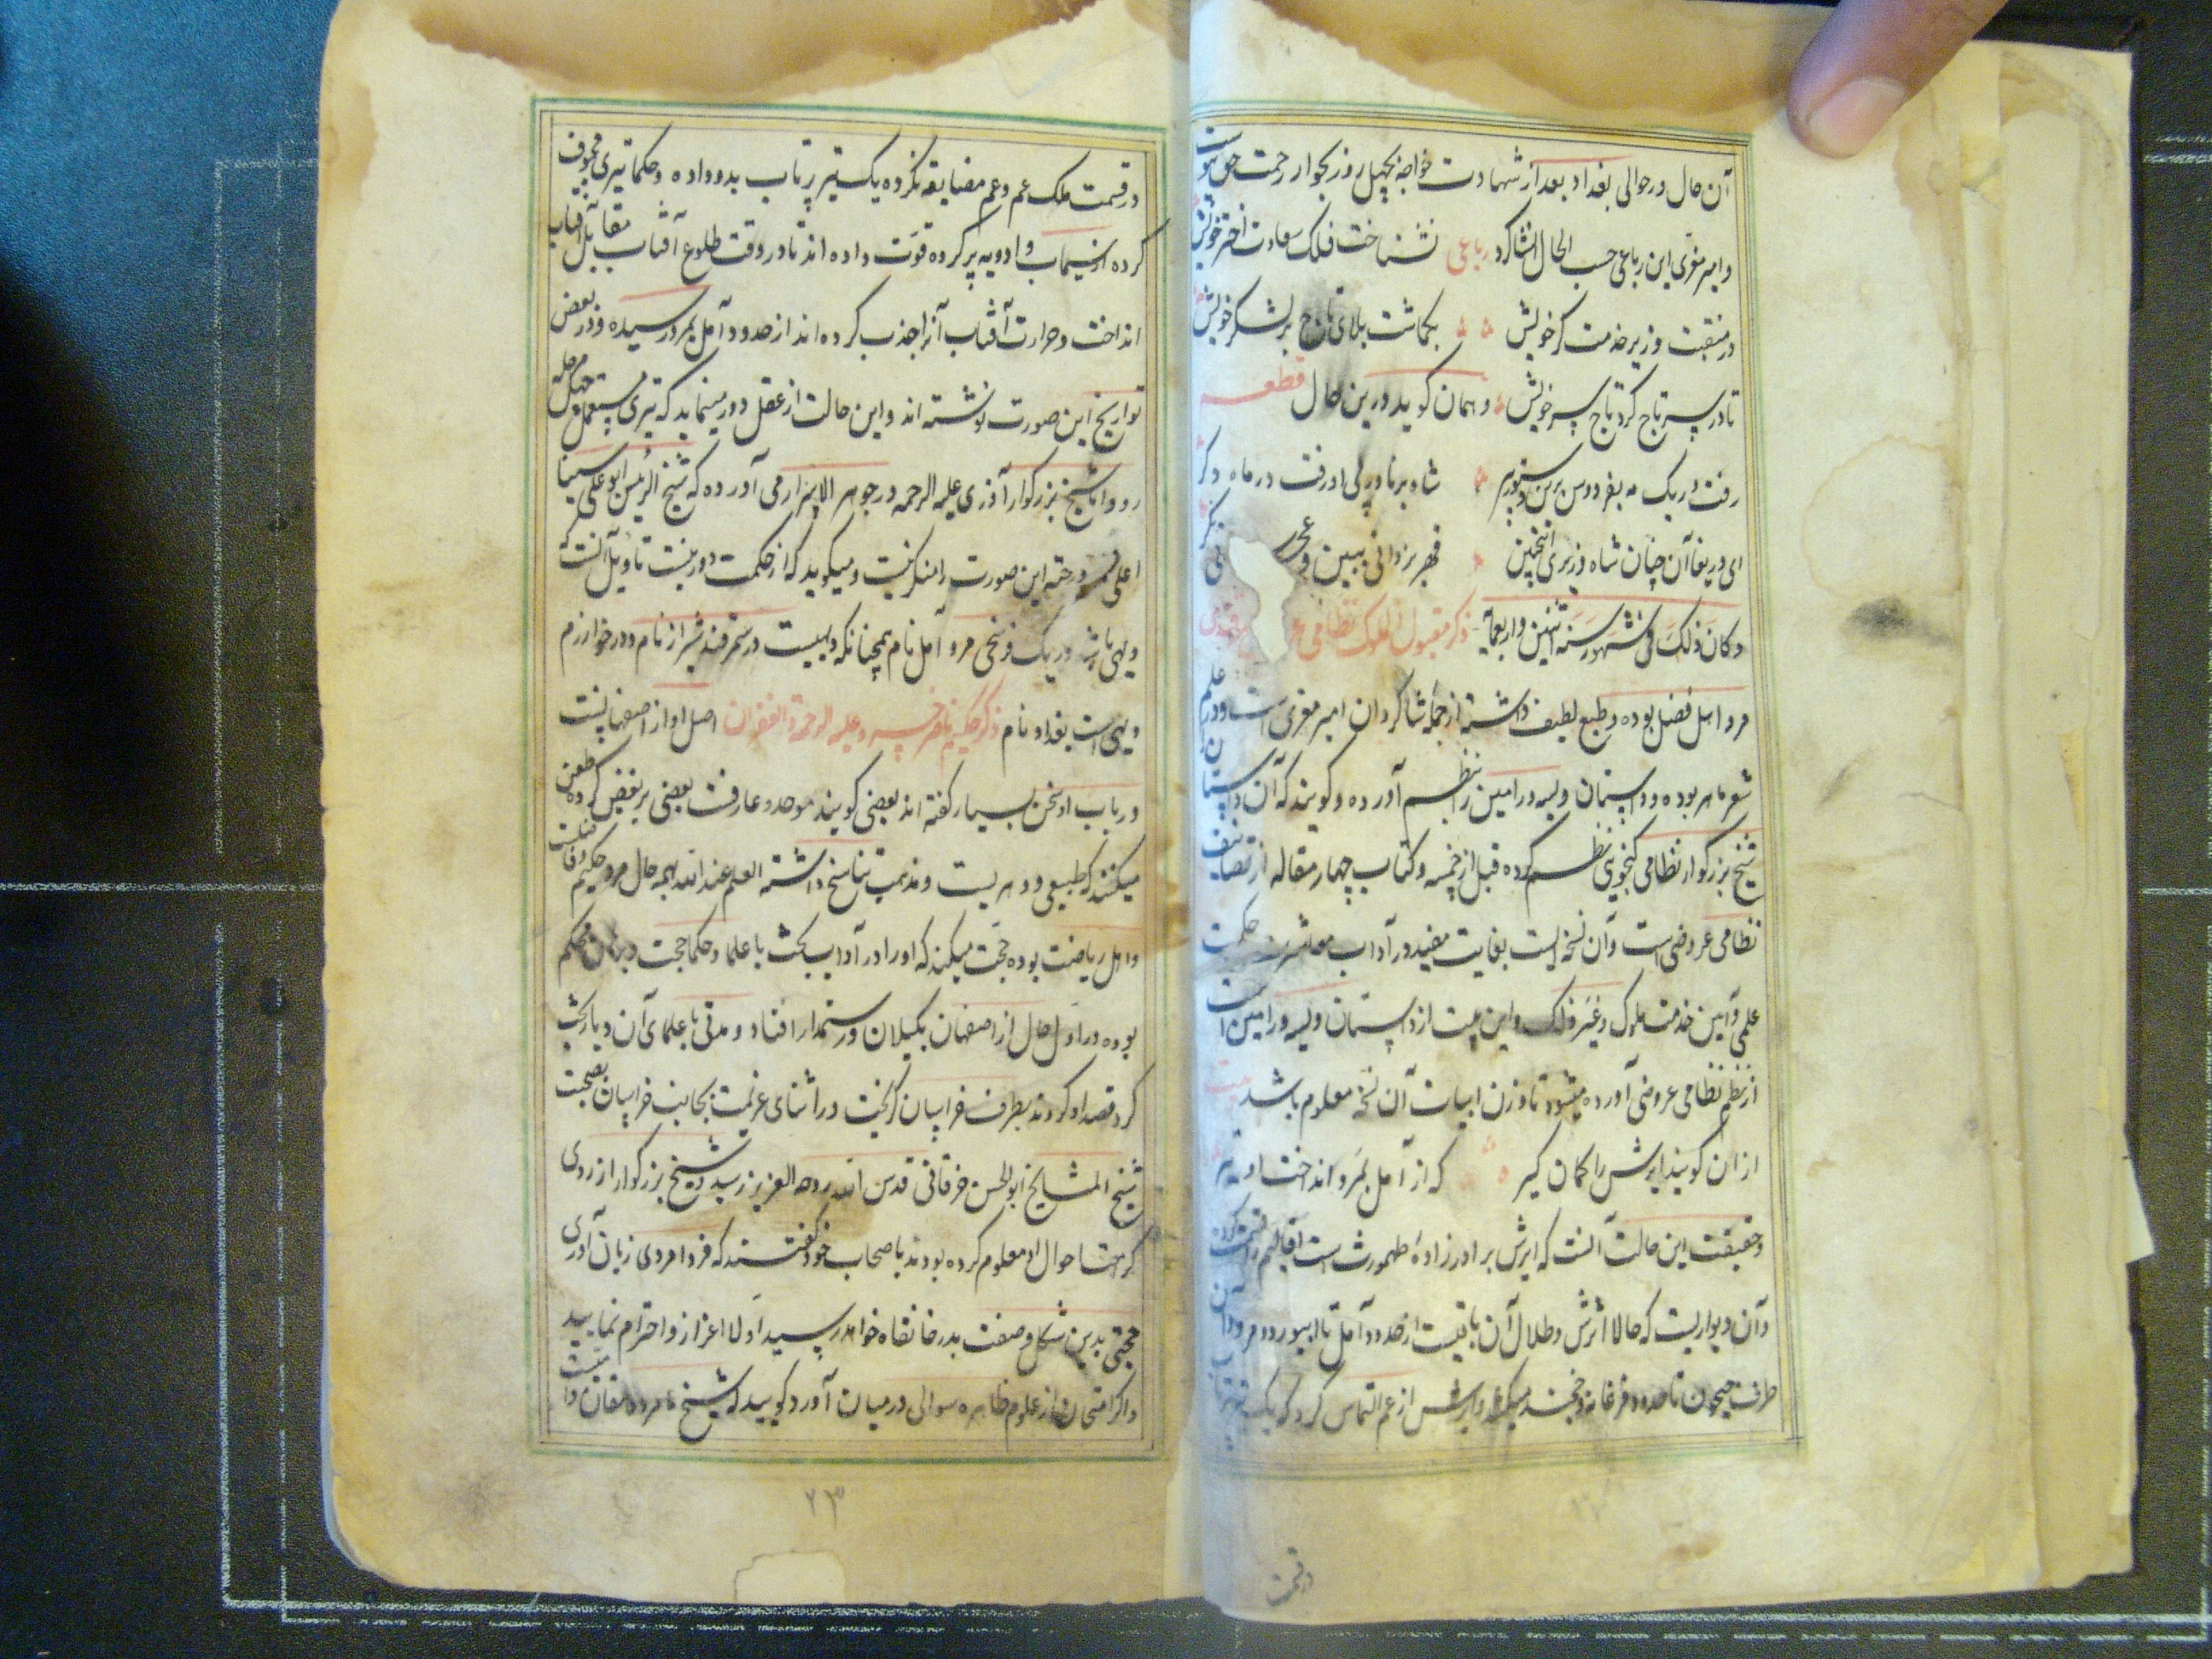 آن حال در حوالی بغداد بعد از شهادت خواجه بچهل روز بجوار رحمت حق پیوست
و امیر معزی این رباعی حسب الحال انشا کرد رباعی نشناخت فلک سعادت اختر خویش
در منقبت وزیر خدمت کر خویش بکماشت بلای تاج بر لشکر خویش
تا در سر تاج کرد تاج سر خویش و همان کوید درین حال قطعه
رفت در یک مه بفردوس برین دستور پیر شاه برنا در پی او رفت در ماه دکر
ای دریغا آن چنان شاه وزیری اینچنین قهر یزدانی ببین و عجز
و کان ذلک فی شهور سنه اثنین و اربعمایه ذکر مقبول الملوک نظامی
مرد اهل فضل بوده و طبع لطیف داشته از جمله شاکردان امیر معزی است و در علم
شعر ماهر بوده و داستان ویسه و رامین را نظم آورده و کویند که آن داستان
شیخ بزرکوار نظامی کنجوی نظم کرده قبل از خمسه و کتاب چهار مقاله از تصانیف
نظامی عروضی است و آن نسخه ایست بغایت مفید در آداب معاشرت حکمت
علمی و آیین خدمت ملوک و غیر ذلک و این بیت از داستان ویسه و رامین است
از نظم نظامی عروضی آورده میشود تا وزن ابیات آن نسخه معلوم باشد بیت
از ان کویند ایرش را کمان کیر که از آمل بمرو انداخت او تیر
و حقیقت این حالت آنست که ایرش برادر زاده طهمورث است اقالیم را قسمت کرده
و آن دیواریست که حالا اثرش و طلال آن باقیست از حدود آمل تا ابیورد و مرو و آن
طرف جیحون تا حدود فرغانه و خجند میکشد و ایرش از عم التماس کرد که یک تیر پرتاب
در قسمت ملک عم و عم مضایقه نکرده یک تیر پرتاب بدو داده و حکما تیری مجوف
کرده از سیماب و ادویه پر کرده قوت داده اند تا در وقت طلوع آفتاب مقابل آفتاب
انداخت و حرارت آفتاب آنرا جذب کرده اند از حدود آمل بمرو رسیده و در بعض
تواریخ این صورت نوشته اند و این حالت از عقل دور مینماید که تیری مستعمل چهل مرحله
رود و اما شیخ بزرکوار آذری علیه الرحمه در جواهر الاسرار می آورده که شیخ الرئیس ابو علی سینا
اعلی الله درجته این صورت را منکر نیست و میکوید که از حکمت دور نیست تاویل آنست که
دیهی باشد در یک فرسخی مرو آمل نام همچنانکه دیهیست در سمرقند شیراز نام و در خوارزم
دیهی است بغداد نام ذکر حکیم ناصر خسرو علیه الرحمة و الغفران اصل او از اصفهانست
و در باب او سخن بسیار کفته اند بعضی کویند موحد و عارفست بعضی بر بعض کرده طعن
میکنند که طبیعی و دهریست و مذهب تناسخ داشته العلم عند الله بهمه حال مرد حکیم و فاضلست
و اهل ریاضت بوده حجت میکند که او را در آداب بحث با علما و حکما حجت و برهان محکم
بوده در اول حال از اصفهان بکیلان و رستمدار افتاد و مدتی با علمای آن دیار بحث
کرد قصد او کردند بطرف خراسان کریخت در اثنای عزیمت بجانب خراسان بصحبت
شیخ المشایخ ابو الحسن خرقانی قدس الله روحه العزیز رسید و شیخ بزرکوار از روی
کرامت احوال او معلوم کرده بودند با صحاب خود کفتند که فردا مردی زبان آوری
حجتی بدین شکل و صفت بدر خانقاه خواهد رسید اولا اعزاز و احترام نمایید
و اکر امتحان از علوم ظاهره سوالی در میان آورد کویید که شیخ ما مرد دهقان و امیست
۲۳
درقسمت